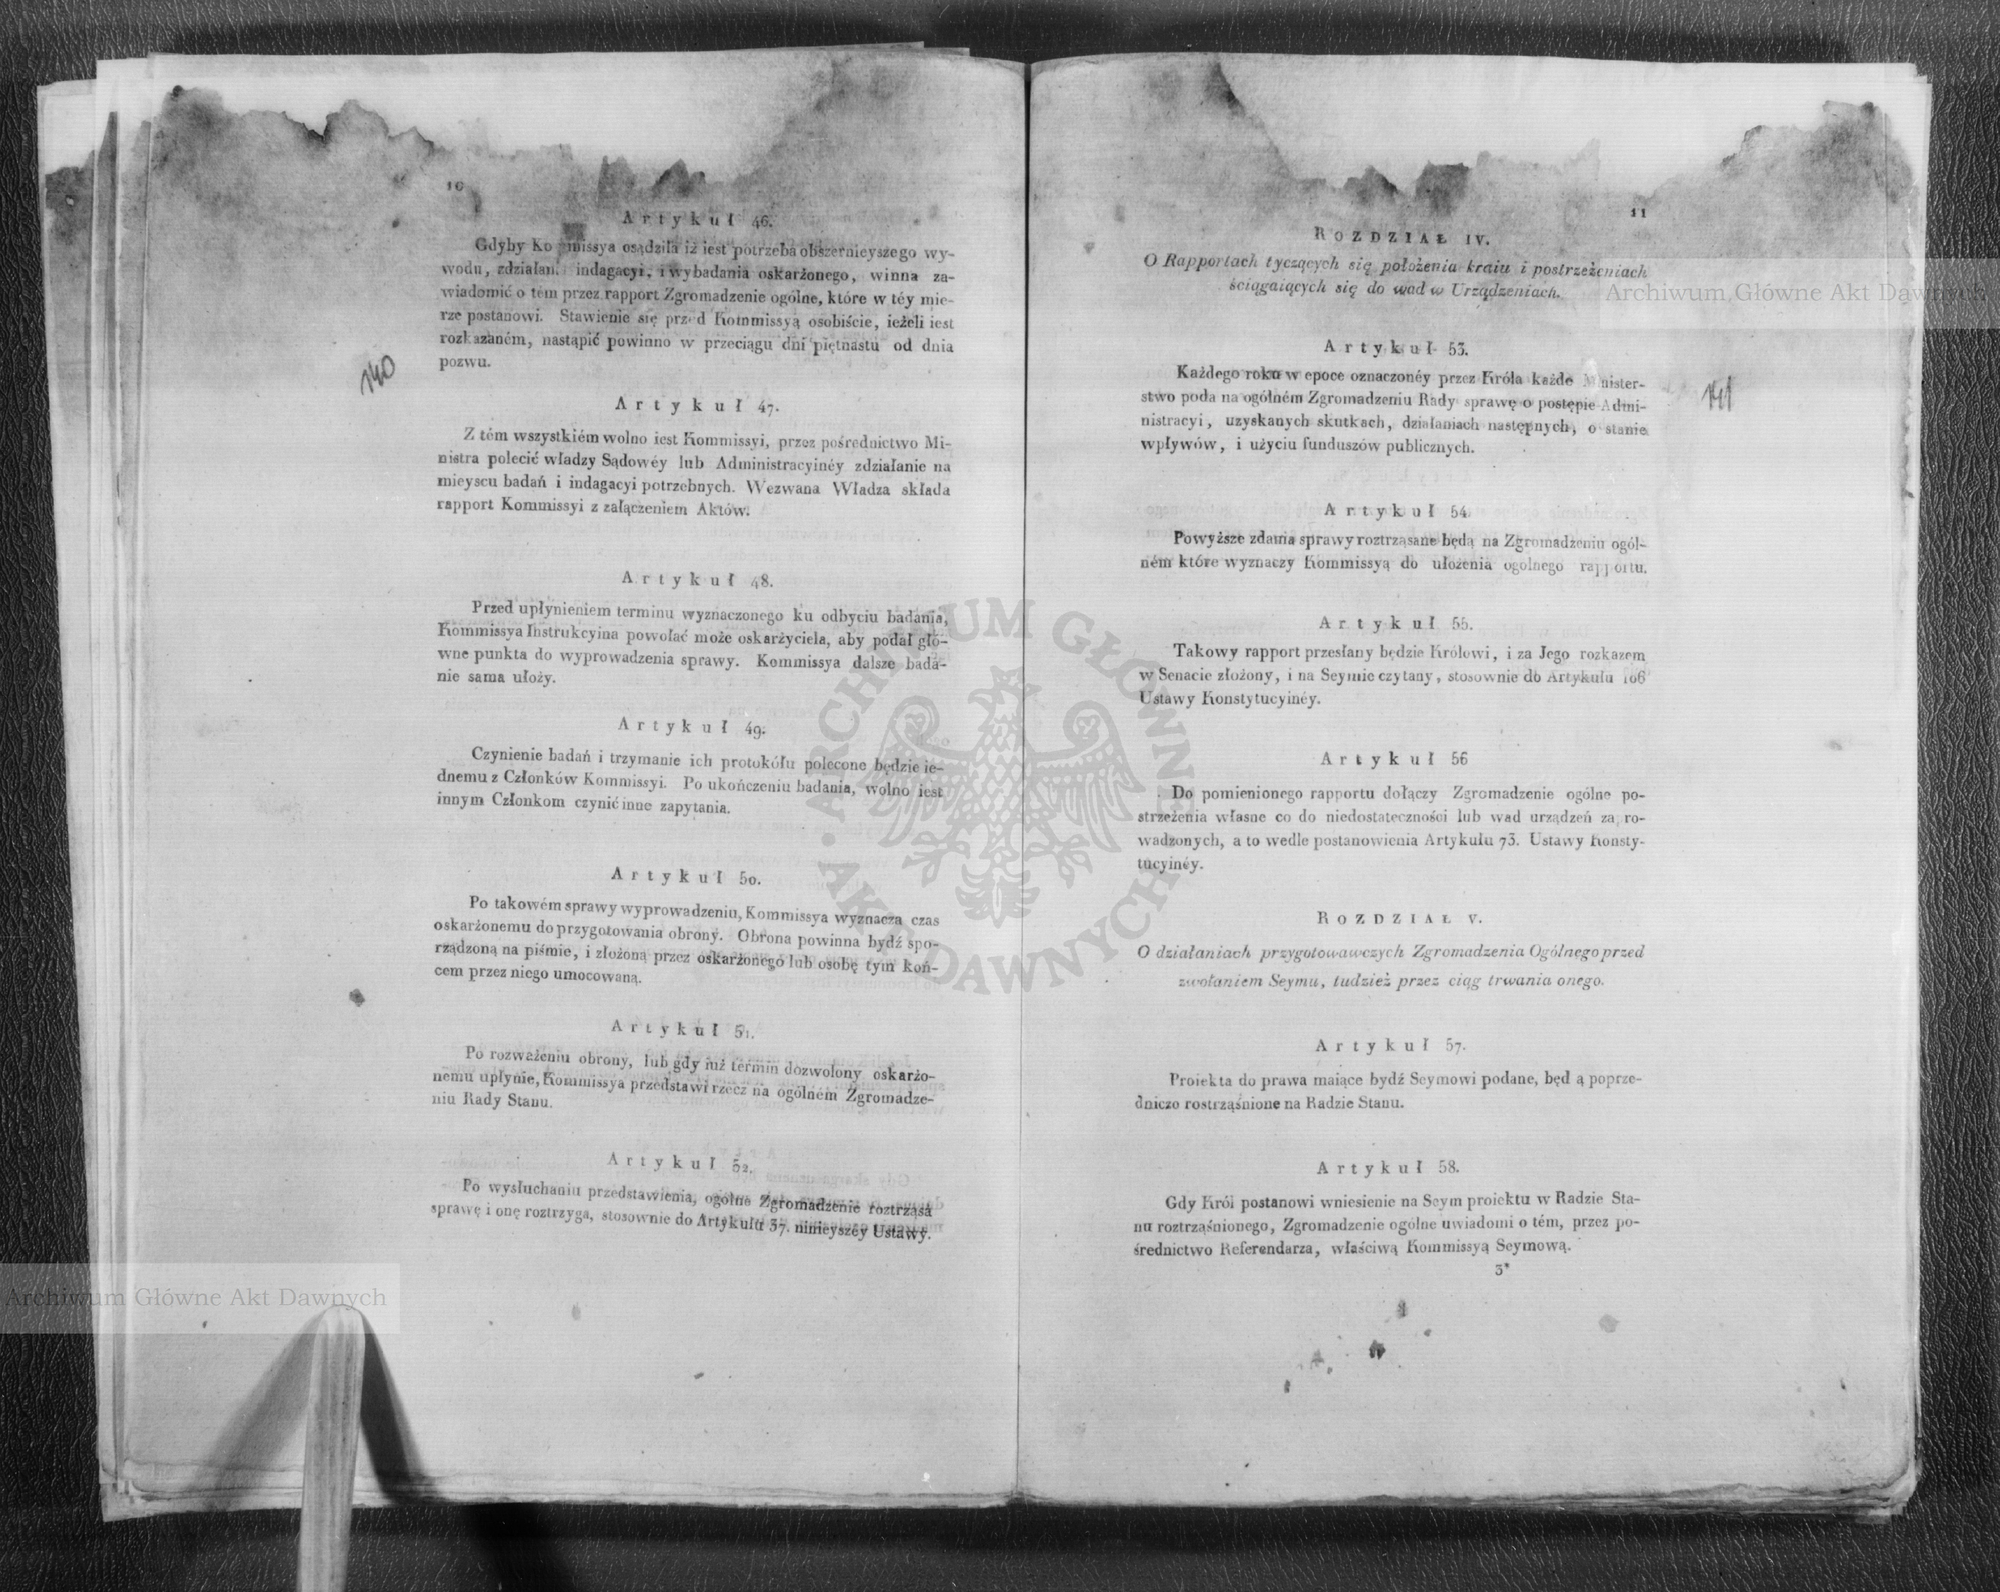 10
Artykuł 46.
Gdyby Kommissya osądziła iż iest potrzeba obszernieyszego wy-
wodu, zdziałan. indagacyi, i wybadania oskarżonego, winna za-
wiadomić o tém przez rapport Zgromadzenie ogólne, które w téy mie-
rze postanowi. Stawienie się przed Kommissyą osobiście, ieżeli iest
rozkazaném, nastąpić powinno w przeciągu dni piętnastu od dnia
pozwu.
140
Artykuł 47.
Z tém wszystkiém wolno iest Kommissyi, przez pośrednictwo Mi-
nistra polecić władzy Sądowéy lub Administracyinéy zdziałanie na
mieyscu badań i indagacyi potrzebnych. Wezwana Władza składa
rapport Kommissyi z załączeniem Aktów.
Artykuł 48.
Przed upłynieniem terminu wyznaczonego ku odbyciu badania,
Kommissya Instrukcyina powołać może oskarżyciela, aby podał głó-
wne punkta do wyprowadzenia sprawy. Kommissya dalsze bada-
nie sama ułoży.
Artykuł 49.
Czynienie badań i trzymanie ich protokółu polecone będzie ie-
dnemu z Członków Kommissyi. Po ukończeniu badania, wolno iest
innym Członkom czynić inne zapytania.
Artykuł 50.
Po takowém sprawy wyprowadzeniu, Kommissya wyznacza czas
oskarżonemu do przygotowania obrony. Obrona powinna bydź spo-
rządzoną na piśmie, i złożoną przez oskarżonego lub osobę tym koń-
cem przez niego umocowaną.
Artykuł 51.
Po rozważeniu obrony, lub gdy iuż termin dozwolony oskarżo-
nemu upłynie, Kommissya przedstawi rzecz na ogólném Zgromadze-
niu Rady Stanu.
Artykuł 52.
Po wysłuchaniu przedstawienia, ogólne Zgromadzenie roztrząsa
sprawę i onę roztrzyga, stosownie do Artykułu 37. ninieyszey Ustawy.
11
ROZDZIAŁ IV.
O Rapportach tyczących się położenia kraiu i postrzeżeniach
ściągaiących się do wad w Urządzeniach.
Artykuł 53.
Każdego roku w epoce oznaczonéy przez Króla każde Minister-
stwo poda na ogólném Zgromadzeniu Rady sprawę o postępie Admi-
nistracyi, uzyskanych skutkach, działaniach następnych, o stanie
wpływów, i użyciu funduszów publicznych.
141
Artykuł 54
Powyższe zdania sprawy roztrząsane będą na Zgromadzeniu ogól-
ném które wyznaczy Kommissyą do ułożenia ogólnego rapportu.
Artykuł 55.
Takowy rapport przesłany będzie Królowi, i za Jego rozkazem
w Senacie złożony, i na Seymie czytany, stosownie do Artykułu 106
Ustawy Konstytucyinéy.
Artykuł 56
Do pomienionego rapportu dołączy Zgromadzenie ogólne po-
strzeżenia własne co do niedostateczności lub wad urządzeń zapro-
wadzonych, a to wedle postanowienia Artykułu 73. Ustawy Konsty-
tucyinéy.
ROZDZIAŁ V.
O działaniach przygotowawczych Zgromadzenia Ogólnego przed
zwołaniem Seymu, tudzież przez ciąg trwania onego.
Artykuł 57.
Proiekta do prawa maiące bydź Seymowi podane, będą poprze-
dniczo rostrząśnione na Radzie Stanu.
Artykuł 58.
Gdy Król postanowi wniesienie na Seym proiektu w Radzie Sta-
nu roztrząśnionego, Zgromadzenie ogólne uwiadomi o tém, przez po-
średnictwo Referendarza, właściwą Kommissyą Seymową.
3*
Archiwum Główne Akt Dawnych
Archiwum Główne Akt Dawnych
ARCHIWUM GŁÓWNE AKT DAWNYCH